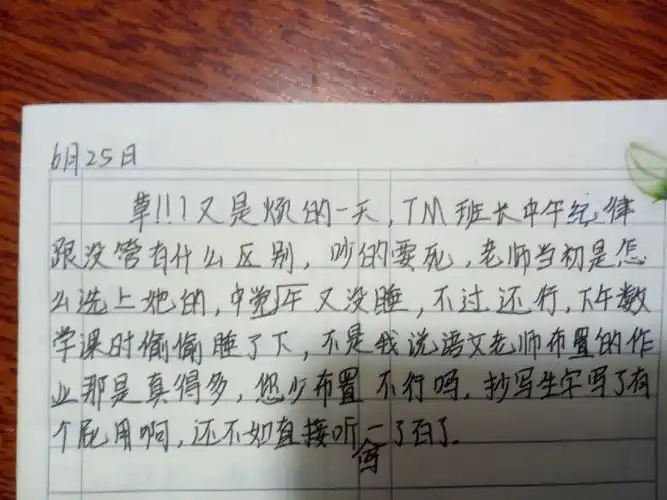 6月25日
草!!!又是烦的一天,TM班长中午纪律
跟没管有什么区别,吵的要死,老师当初是怎
么选上她的,中午觉又没睡,不过还行,下午数
学课时偷偷睡了下,不是我说语文老师布置的作
业那是真得多,您少布置不行吗,抄写生字写了有
个屁用啊,还不如直接听写